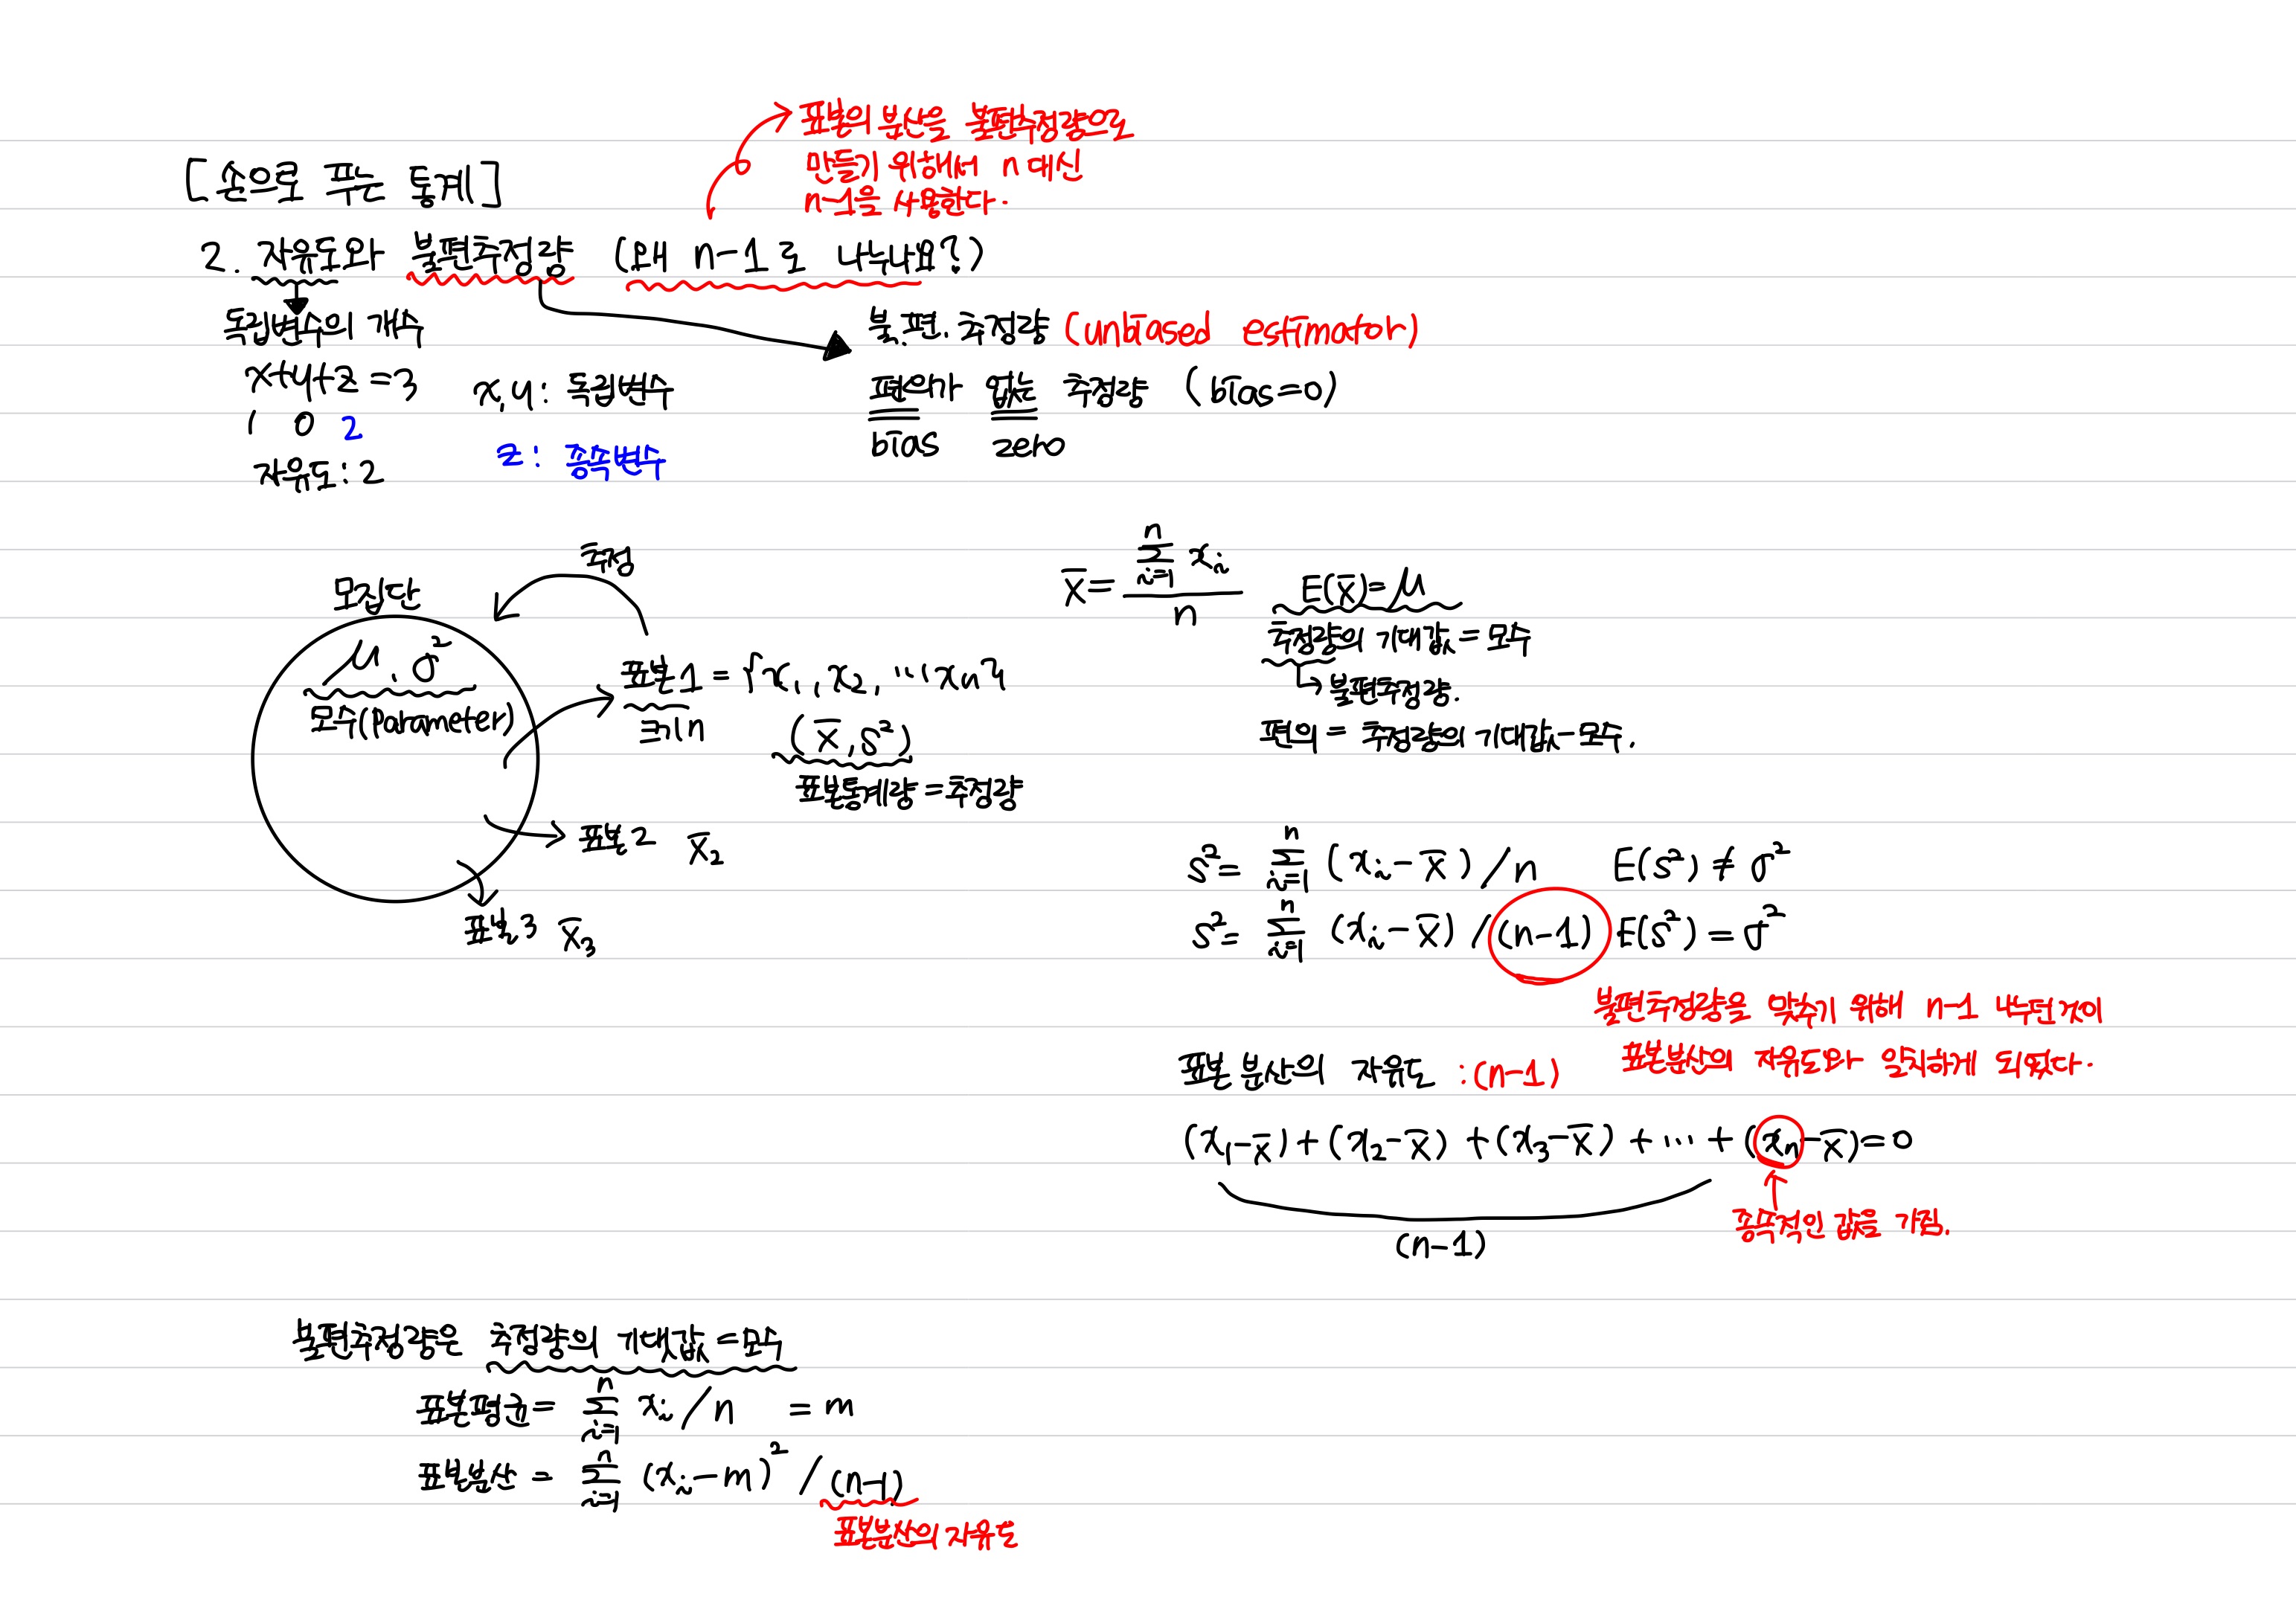 표본의 분산을 불편추정량으로
만들기 위해서 n 대신
n-1을 사용한다.
[손으로 푸는 통계]
2. 자유도와 불편추정량 (왜 n-1로 나누나요?)
독립변수의 개수
x+y+z=3
1 0 2
자유도:2
x,y: 독립변수
z: 종속변수
불.편.추정량 (unbiased estimator)
편의가 없는 추정량 (bias=0)
bias zero
추정
모집단
μ, σ²
모수(parameter)
표본1 = {x₁, x₂, ⋯ xn}
크기n
(x̄, s²)
표본통계량=추정량
표본2 x̄₂
표본3 x̄₃
x̄ = Σ(i=1→n) xᵢ / n
E(x̄)=μ
추정량의 기대값=모수
→불편추정량.
편의 = 추정량의 기대값-모수.
s² = Σ(i=1→n) (xᵢ-x̄)/n E(s²)≠σ²
s² = Σ(i=1→n) (xᵢ-x̄)/(n-1) E(s²)=σ²
불편추정량을 맞추기 위해 n-1 나누던것이
표본분산의 자유도와 일치하게 되었다.
표본 분산의 자유도 :(n-1)
(x₁-x̄)+(x₂-x̄)+(x₃-x̄)+⋯+(xn-x̄)=0
(n-1)
종속적인 값을 가짐.
불편추정량은 추정량의 기댓값=모수
표본평균= Σ(i=1→n) xᵢ/n = m
표본분산 = Σ(i=1→n) (xᵢ-m)²/(n-1)
표본분산의 자유도